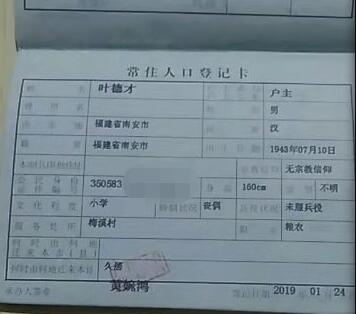 常住人口登记卡
姓名 叶德才 户主
男
出生地 福建省南安市 汉
籍贯 福建省南安市 出生日期 1943年07月10日
宗教信仰 无宗教信仰
公民身份证件编号 350583 身高 160cm 不明
文化程度 小学 婚姻状况 丧偶 兵役状况 未服兵役
服务处所 梅溪村 粮农
何时由何地迁来本市(县)
何时由何地迁来本址 久居
承办人签章 黄婉鸿 登记日期 2019 01 24